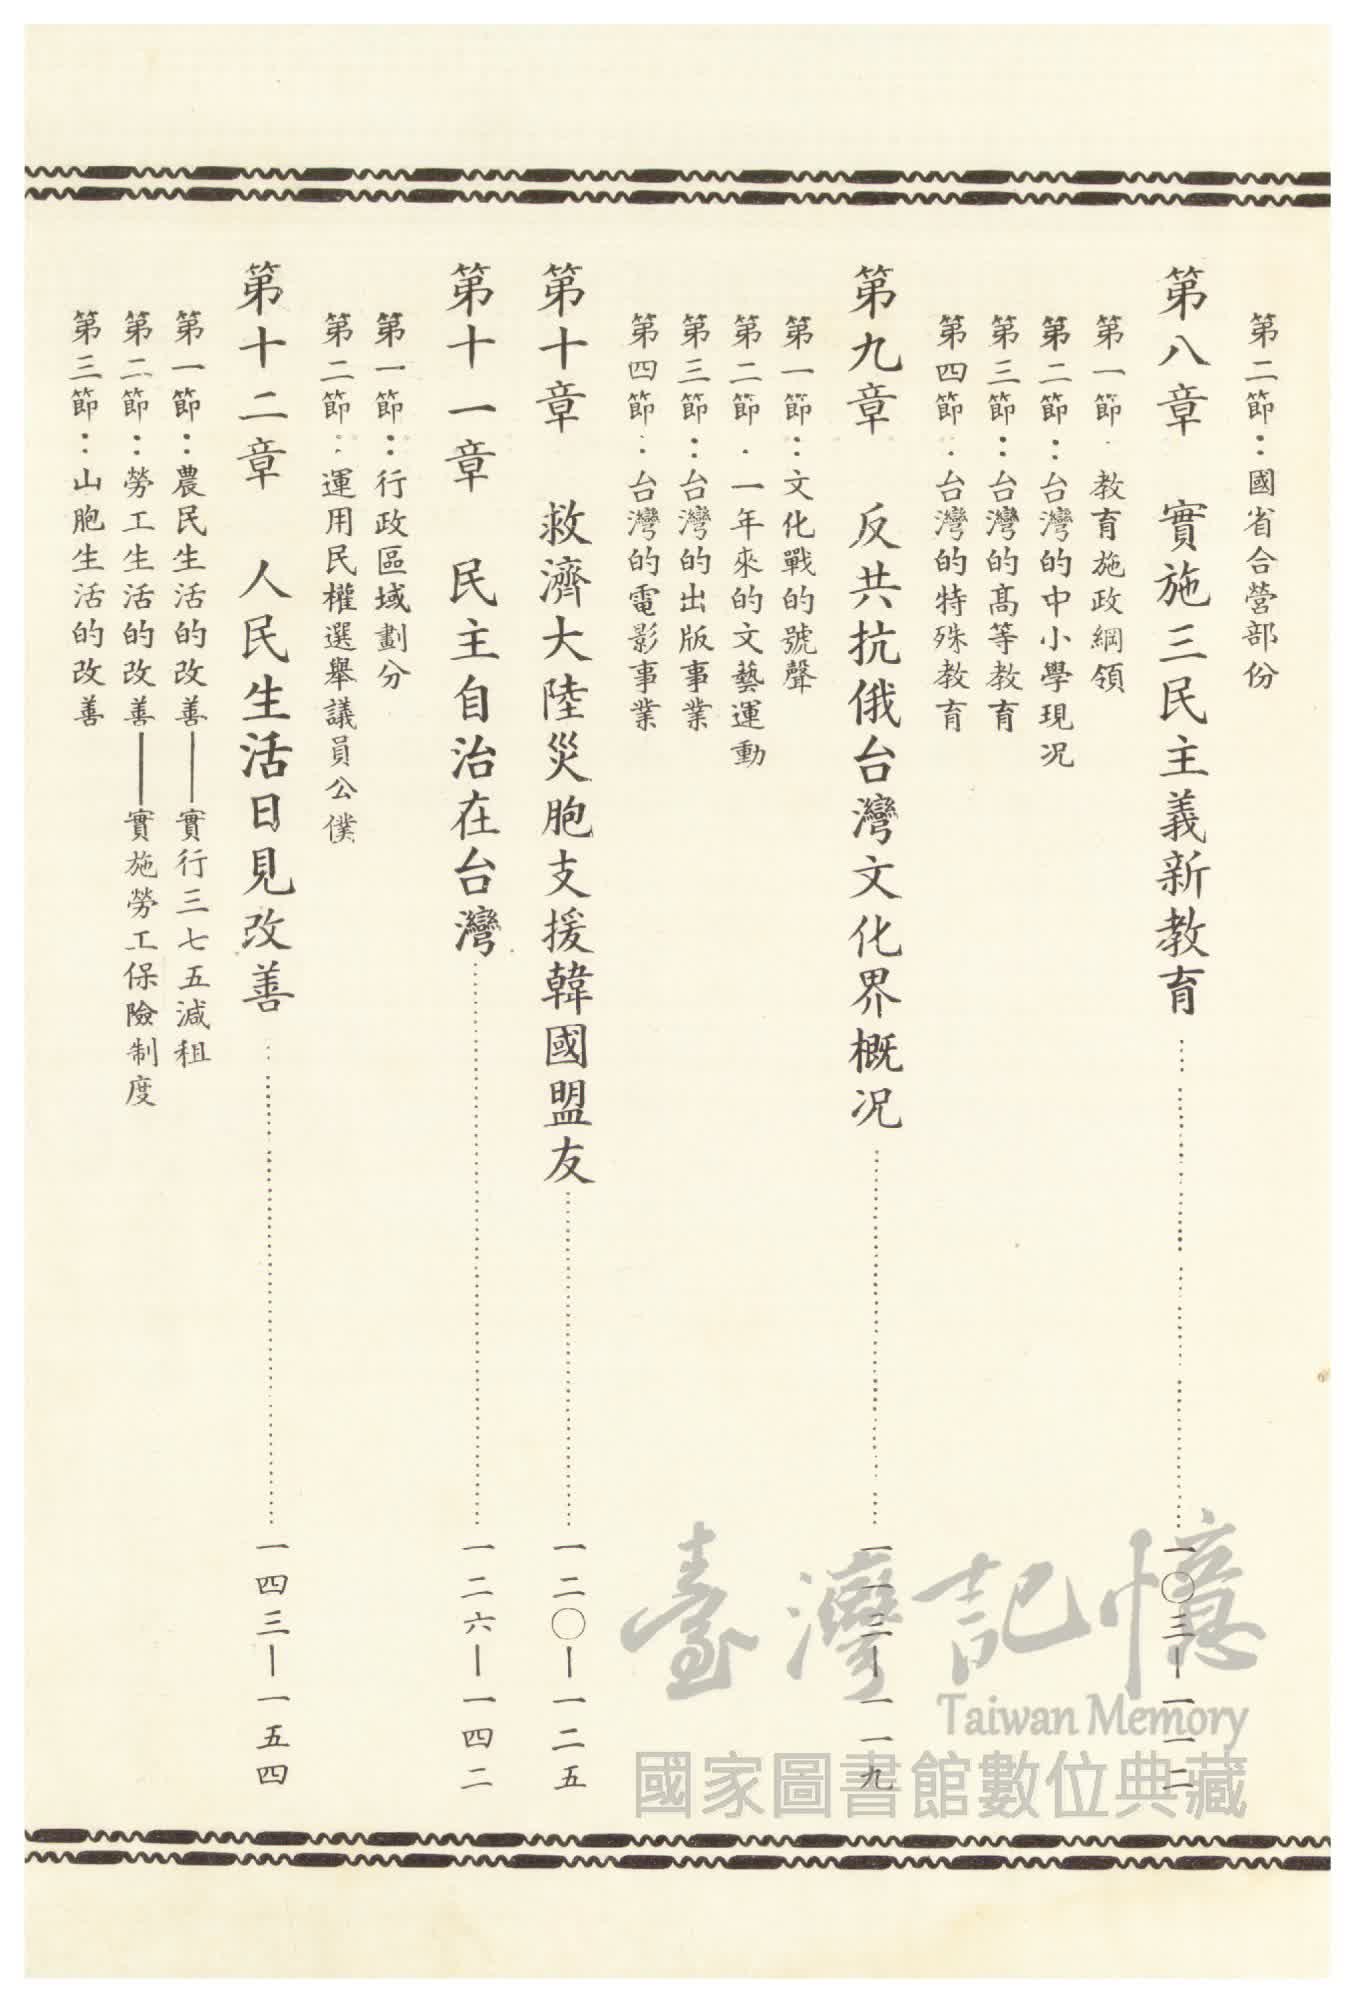 第二節：國省合營部份
第八章　實施三民主義新教育……一〇三—一一二
第一節：教育施政綱領
第二節：台灣的中小學現况
第三節：台灣的高等教育
第四節：台灣的特殊教育
第九章　反共抗俄台灣文化界概况……一一三—一一九
第一節：文化戰的號聲
第二節：一年來的文藝運動
第三節：台灣的出版事業
第四節：台灣的電影事業
第十章　救濟大陸災胞支援韓國盟友……一二〇—一二五
第十一章　民主自治在台灣……一二六—一四二
第一節：行政區域劃分
第二節：運用民權選舉議員公僕
第十二章　人民生活日見改善……一四三—一五四
第一節：農民生活的改善——實行三七五減租
第二節：勞工生活的改善——實施勞工保險制度
第三節：山胞生活的改善
臺灣記憶
Taiwan Memory
國家圖書館數位典藏